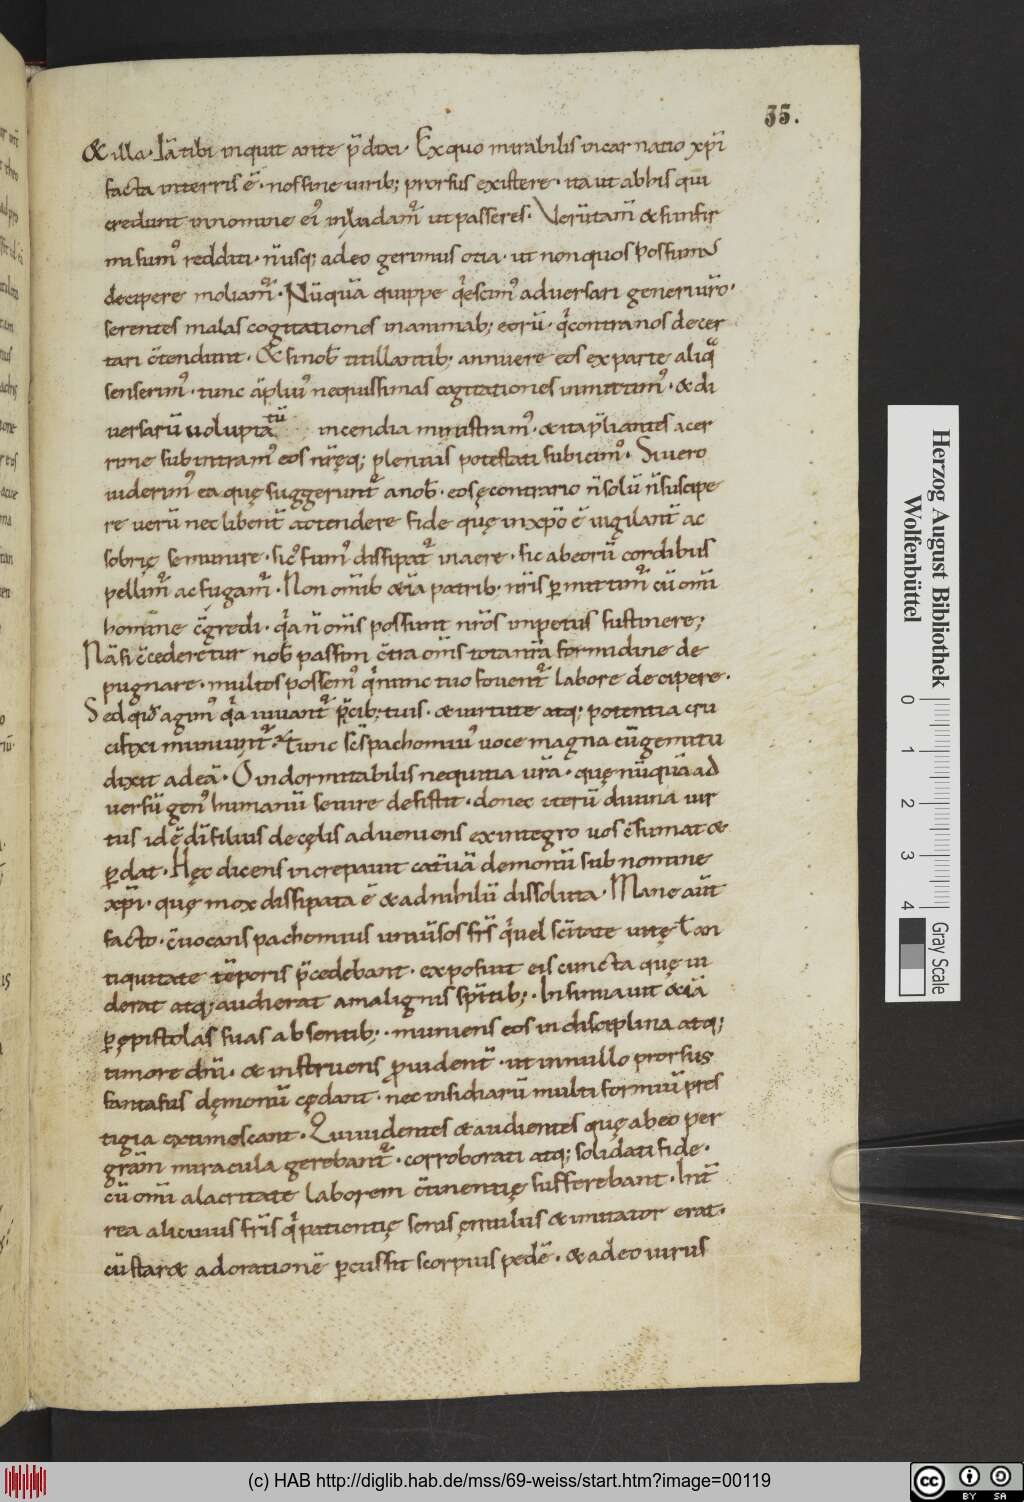 35.
& illa. Iā tibi inquit ante p̄dixi. Ex quo mirabilis incarnatio xp̄i
facta interris ē. nos sine virib; prorsus existere. ita ut ab his qui
credunt innomine ei᾽ inludam᷒ ut passeres. Verūtam̄ & si infir
mi sum᾽ redditi. nūsq; adeo gerimus otia. ut non quos possum᾽
decipere moliam᷒. Nūquā quippe q̇escim᾽ adversari generi vr̄o.
serentes malas cogitationes in animab; eorū. q̇ contra nos decer
tari c̄tendunt. & si nob̄ titillantib; annuere eos ex parte aliqͣ
senserim᾽. tunc āplius nequissimas cogitationes inmittim᾽. & di
versarū voluptatū incendia ministram᾽. & ita p̄liantes acer
rime subintram᾽ eos nr̄ęq; plenius potestati subicim᾽. Si vero
viderim᾽ ea quę suggerunt᷒ a nob̄. eos ęcontrario n̄ solū n̄ suscipe
re verū nec libent̄ attendere fide quę in xp̄o ē vigilant̄ ac
sobrię se munire. sic᾽ fum᾽ dissipat᷒ in aere. sic ab eorū cordibus
pellim᷒ ac fugam᷒. Non om̄ib & iā patrib. nr̄is ꝑmittim᷒ cū om̄i
homine c̄gredi. q̇a n̄ om̄s possunt nr̄os impetus sustinere;
Nā si c̄cederetur nob̄ passim c̄tra om̄s tota nr̄a formidine de
pugnare. multos possem᾽ q̇ nunc tuo fovent᷒ labore decipere.
Sed qid agim᾽ q̇a iuvant᷒ p̄cib; tuis. & virtute atq; potentia cru
cifixi muniunt᷒. Tunc sc̄s pachomiu᾽ voce magna cū gemitu
dixit ad eā. O indormitabilis nequitia vr̄a. quę nūquā ad
versū gen᾽ humanū sevire desistit. donec iterū divina vir
tus id ē dī filius de cęlis adveniens ex integro vos c̄sumat &
ꝑdat. Hęc dicens increpavit catervā demonū sub nomine
xp̄i. quę mox dissipata ē & ad nihilū dissoluta. Mane aūt
facto. c̄vocans pachomius univ̄sos fr̄s q̇ vel sc̄itate vitę ł an
tiquitate tēporis p̄cedebant. exposuit eis cuncta quę vi
derat atq; audierat a malignis sp̄itib;. Insinuavit & iā
ꝑ ępistolas suas absentib;. muniens eos in disciplina atq;
timore dn̄i. & instruens ꝓvident̄. ut in nullo prorsus
fantasiis dęmonū cędant. nec insidiarū multiformiū pres
tigia extimescant. Qui videntes & audientes quę ab eo per
gr̄am miracula gerebant᷒. corroborati atq; solidati fide.
cū om̄i alacritate laborem c̄tinentię sufferebant. Int̄
rea alicuius fr̄is q̇ patientię senis ęmulus & imitator erat.
cū star& ad oratione ꝑcussit scorpius pedē. & adeo virus
Herzog August Bibliothek
Wolfenbüttel
0
1
2
3
4
Gray Scale
(c) HAB http://diglib.hab.de/mss/69-weiss/start.htm?image=00119
cc
BY SA